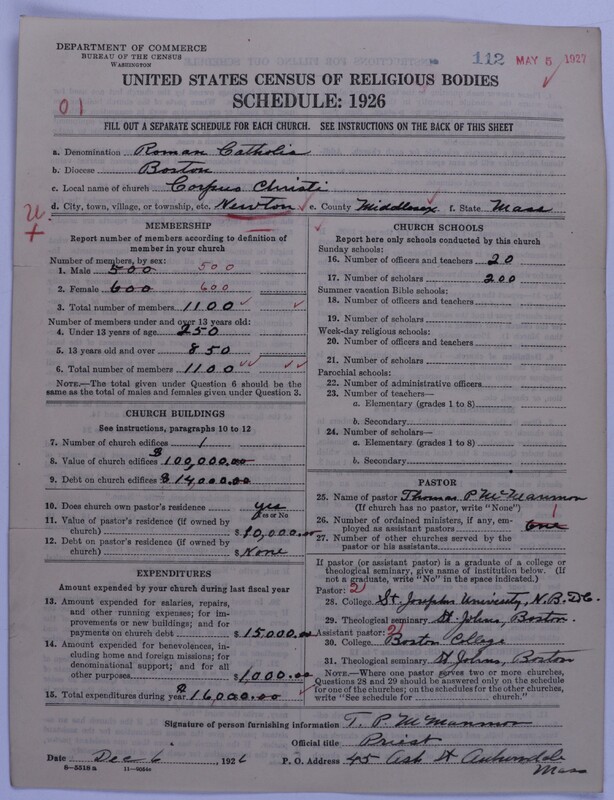 DEPARTMENT OF COMMERCE
BUREAU OF THE CENSUS
WASHINGTON
112 MAY 5 1927
UNITED STATES CENSUS OF RELIGIOUS BODIES
SCHEDULE: 1926
01
FILL OUT A SEPARATE SCHEDULE FOR EACH CHURCH. SEE INSTRUCTIONS ON THE BACK OF THIS SHEET
a. Denomination Roman Catholic
b. Diocese Boston
c. Local name of church Corpus Christi
d. City, town, village, or township, etc. Newton e. County Middlesex f. State Mass
MEMBERSHIP
Report number of members according to definition of
member in your church
Number of members, by sex:
1. Male 500 500
2. Female 600 600
3. Total number of members 1100
Number of members under and over 13 years old:
4. Under 13 years of age 250
5. 13 years old and over 850
6. Total number of members 1100
NOTE.—The total given under Question 6 should be
same as the total of males and females given under Question 3.
CHURCH BUILDINGS
See instructions, paragraphs 10 to 12
7. Number of church edifices 1
8. Value of church edifices $100,000.00
9. Debt on church edifices $14,000.00
10. Does church own pastor's residence yes
Yes or No
11. Value of pastor's residence (if owned by
church) $10,000.00
12. Debt on pastor's residence (if owned by
church) $None
EXPENDITURES
Amount expended by your church during last fiscal year
13. Amount expended for salaries, repairs,
and other running expenses; for im-
provements or new buildings; and for
payments on church debt $15000.00
14. Amount expended for benevolences,
including home and foreign missions; for
denominational support; and for all
other purposes $1000.00
15. Total expenditures during year $16,000.00
CHURCH SCHOOLS
Report here only schools conducted by this church
Sunday schools:
16. Number of officers and teachers 20
17. Number of scholars 200
Summer vacation Bible schools:
18. Number of officers and teachers
19. Number of scholars
Week-day religious schools:
20. Number of officers and teachers
21. Number of scholars
Parochial schools:
22. Number of administrative officers
23. Number of teachers—
a. Elementary (grades 1 to 8)
b. Secondary
24. Number of scholars—
a. Elementary (grades 1 to 8)
b. Secondary
PASTOR
25. Name of pastor Thomas P McManmon
(If church has no pastor, write "None")
26. Number of ordained ministers, if any, em-
ployed as assistant pastors one 1
27. Number of other churches served by the
pastor or his assistants
If pastor (or assistant pastor) is a graduate of a college or
theological seminary, give name of institution below. (If
not a graduate, write "No" in the space indicated.)
Pastor: 2
28. College St. Josephs University, N.B.
29. Theological seminary St. Johns, Boston.
Assistant pastor: 2
30. College Boston College
31. Theological seminary St Johns, Boston
NOTE.—Where one pastor serves two or more churches,
Questions 28 and 29 should be answered only on the schedule
for one of the churches; on the schedules for the other churches,
write "See schedule for church."
Signature of person furnishing information T. P. McManmon
Official title Priest
Date Dec 6, 1926 P. O. Address 45 Ash St Auburndale
Mass
8—5518 a 11—9054